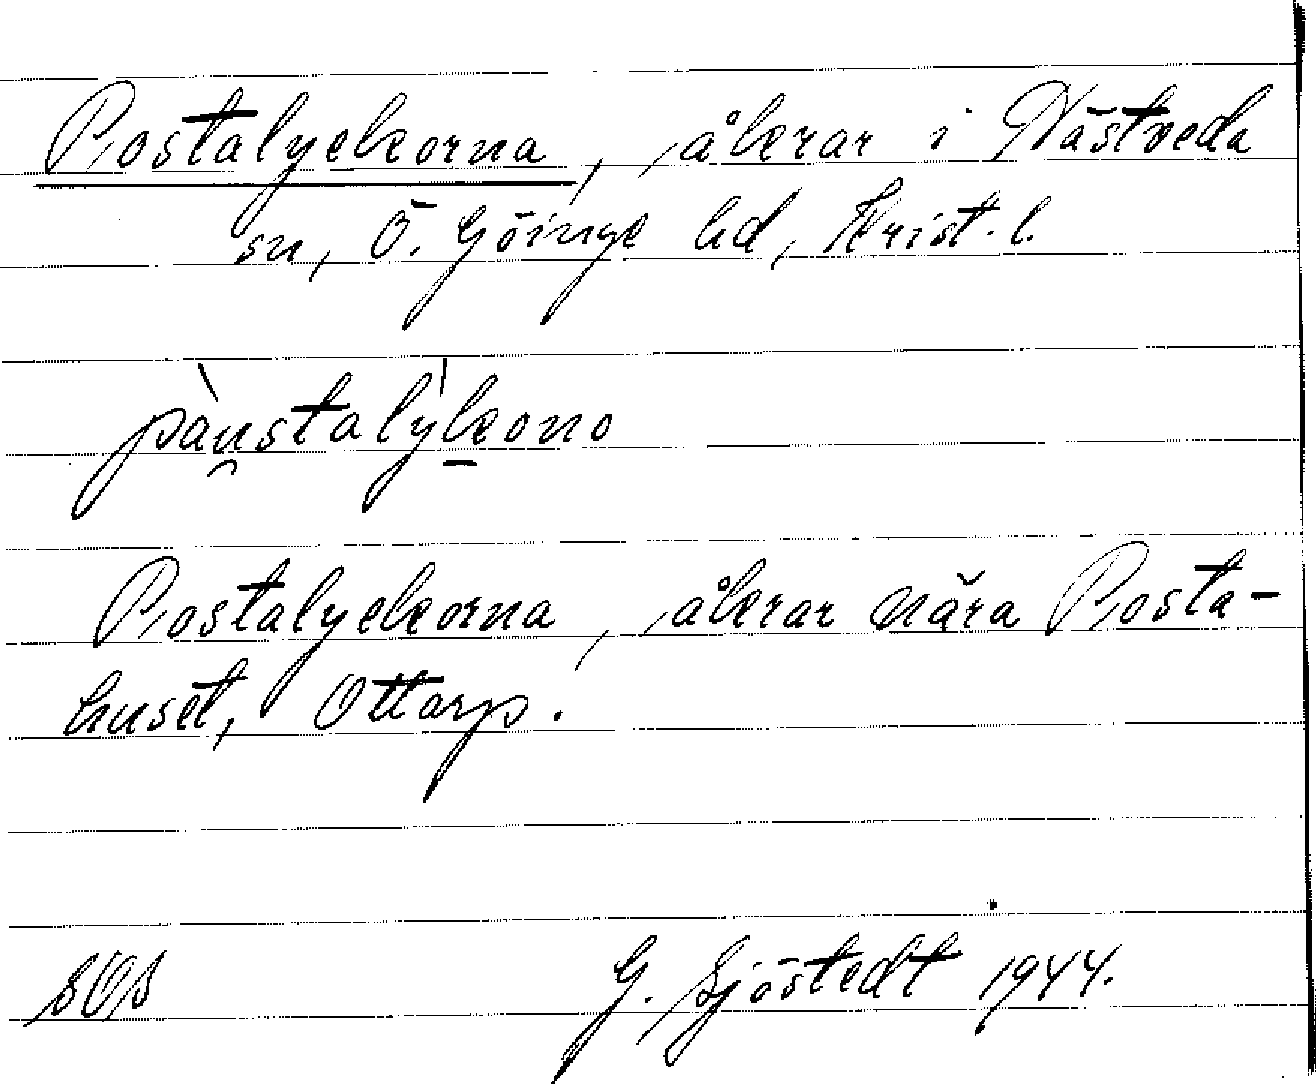 Postalyckorna, åkrar i Nästveda
sn, Ö. Göinge hd, Krist. l.
pàu̯stalỳk̠ono
Postalyckorna, åkrar nära Posta-
huset, Ottarp.
SOS G. Sjöstedt 1944.